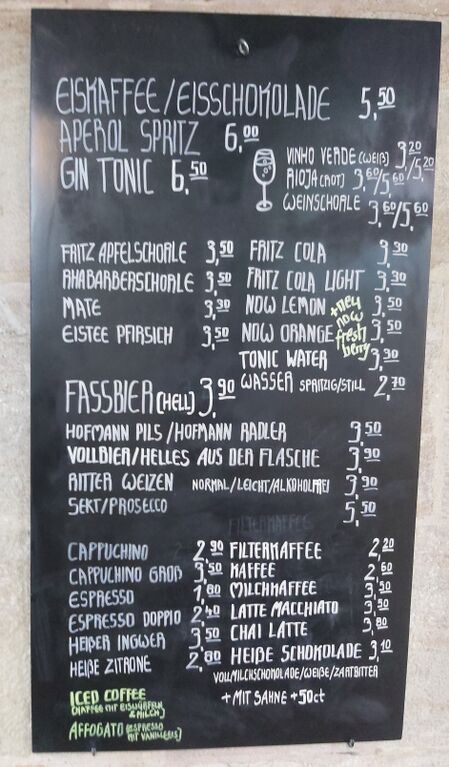 EISKAFFEE/EISSCHOKOLADE 5,50
APEROL SPRITZ 6,00
GIN TONIC 6,50
VINHO VERDE (WEIß) 3,20/5,20
RIOJA (ROT) 3,60/5,60
WEINSCHORLE 3,60/5,60
FRITZ APFELSCHORLE 3,50
RHABARBERSCHORLE 3,50
MATE 3,30
EISTEE PFIRSICH 3,50
FRITZ COLA 3,30
FRITZ COLA LIGHT 3,30
NOW LEMON 3,50
NOW ORANGE 3,50
+NEU
NOW
fresh
berry
TONIC WATER 3,30
WASSER SPRITZIG/STILL 2,70
FASSBIER (HELL) 3,90
HOFMANN PILS/HOFMANN RADLER 3,50
VOLLBIER/HELLES AUS DER FLASCHE 3,90
RITTER WEIZEN NORMAL/LEICHT/ALKOHOLFREI 3,90
SEKT/PROSECCO 5,50
FILTERKAFFEE
CAPPUCHINO 2,90
CAPPUCHINO GROß 3,50
ESPRESSO 1,80
ESPRESSO DOPPIO 2,40
HEIßER INGWER 3,50
HEIßE ZITRONE 2,80
FILTERKAFFEE 2,20
KAFFEE 2,60
MILCHKAFFEE 3,50
LATTE MACCHIATO 3,50
CHAI LATTE 3,80
HEIßE SCHOKOLADE 3,10
VOLLMILCHSCHOKOLADE/WEIßE/ZARTBITTER
+ MIT SAHNE +50ct
ICED COFFEE
(KAFFEE MIT EISWÜRFELN
& MILCH)
AFFOGATO (ESPRESSO
MIT VANILLEEIS)